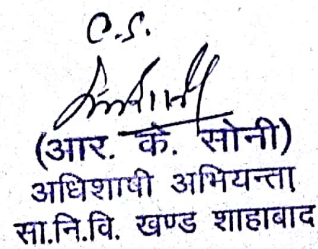 C.S.
(आर. के. सोनी)
अधिशाषी अभियन्ता
सा.नि.वि. खण्ड शाहाबाद